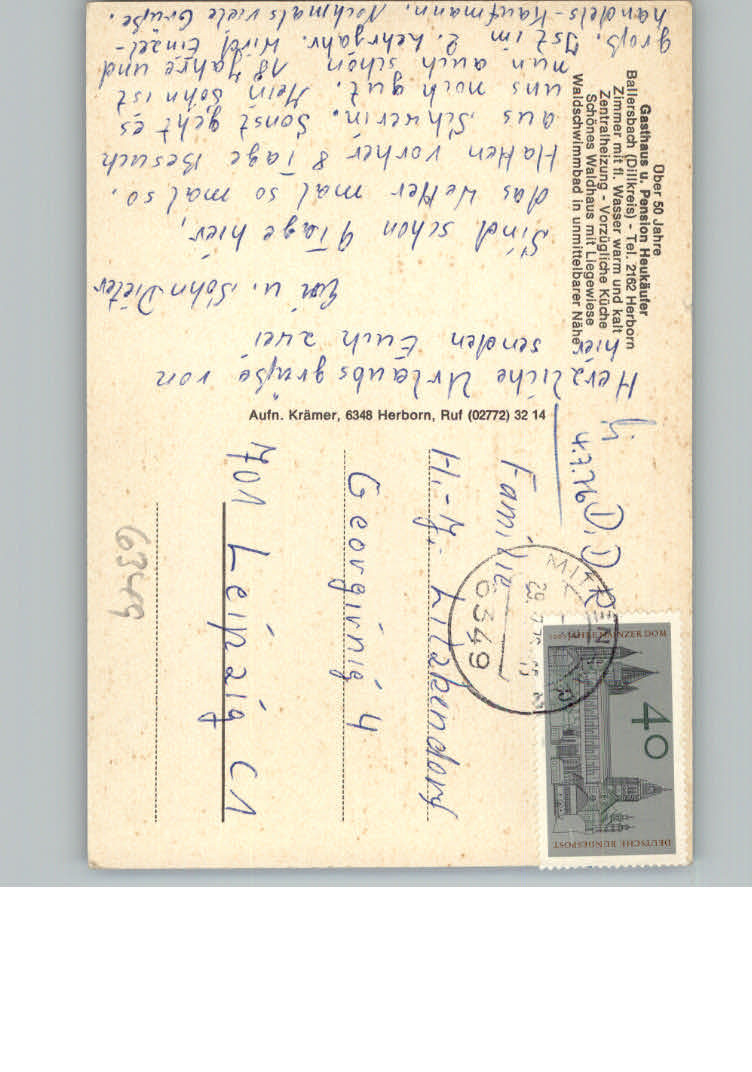 Über 50 Jahre
Gasthaus u. Pension Heukäufer
Ballersbach (Dillkreis) - Tel. 2162 Herborn
Zimmer mit fl. Wasser warm und kalt
Zentralheizung - Vorzügliche Küche
Schönes Waldhaus mit Liegewiese
Waldschwimmbad in unmittelbarer Nähe
Herzliche Urlaubsgrüße von
hier senden Euch zwei
u. Sohn Dieter
Sind schon 9 Tage hier,
das Wetter mal so mal so.
Hatten vorher 8 Tage Besuch
aus Schwerin. Sonst geht es
uns noch gut. Mein Sohn ist
nun auch schön 18 Jahre und
groß. Ist im 2. Lehrjahr. Wird Einzel-
handels-Kaufmann. Nochmals viele Grüße.
Aufn. Krämer, 6348 Herborn, Ruf (02772) 32 14
D.D.R.
Familie
H.-J. Litzkendorf
Georgiring 4
701 Leipzig C1
6349
6349
JAHRE MAINZER DOM
40
DEUTSCHE BUNDESPOST